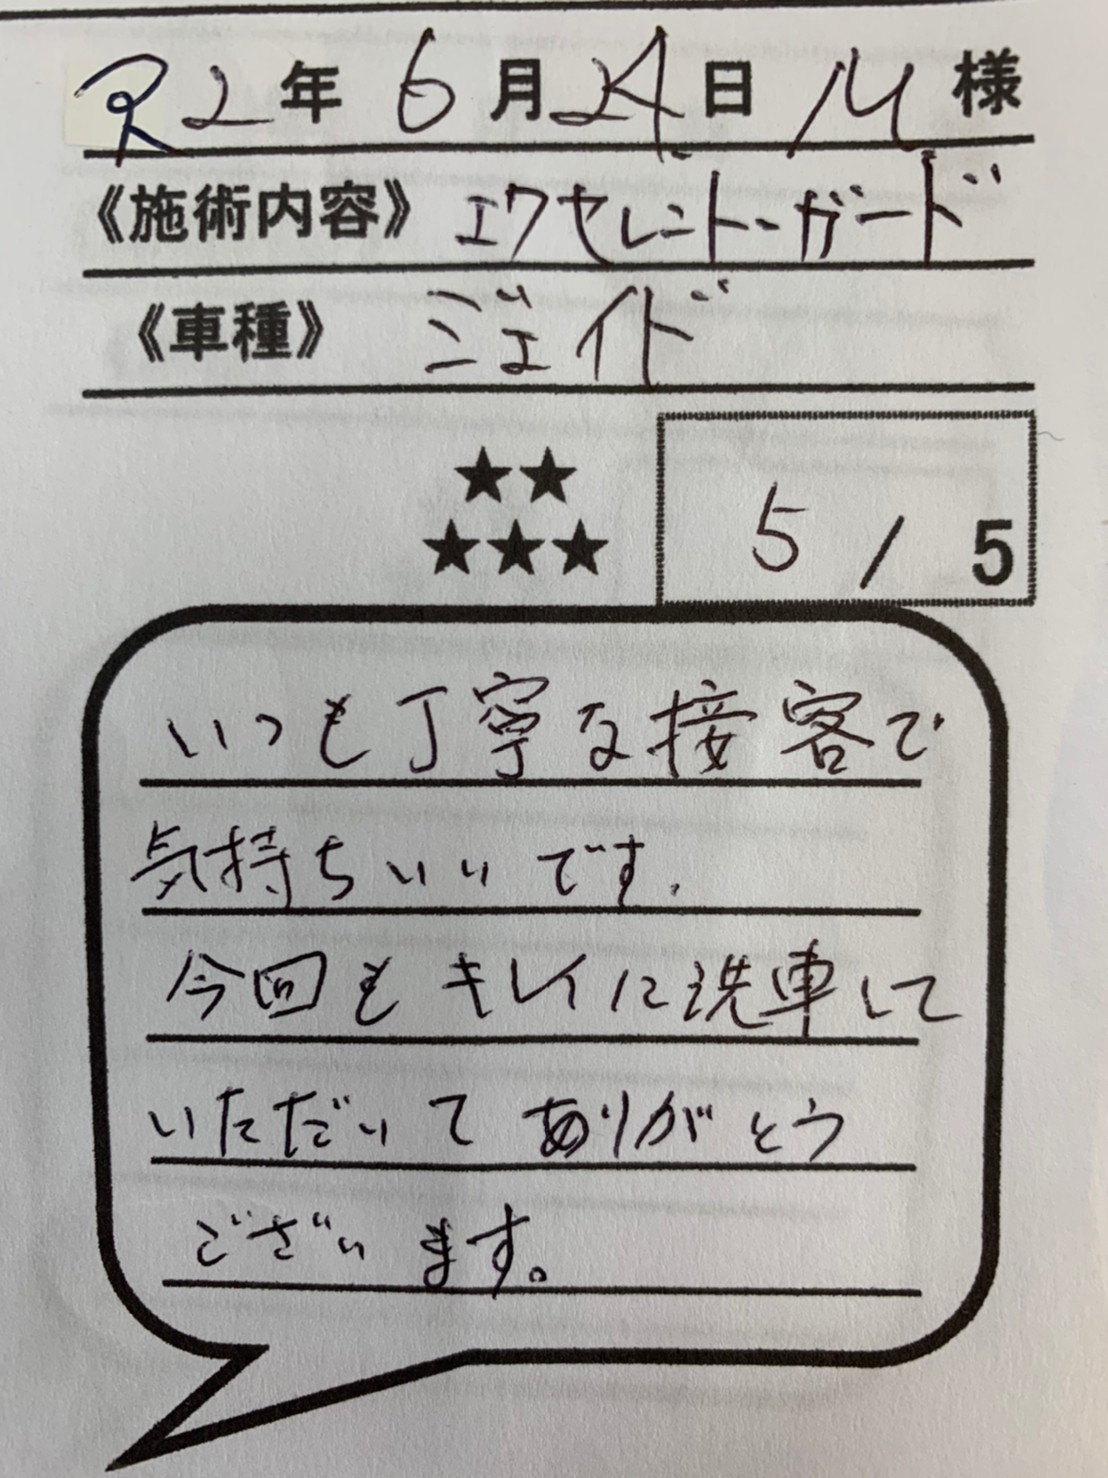 R2年6月24日 M様
《施術内容》エクセレント・ガード
《車種》ジェイド
★★
★★★
5/5
いつも丁寧な接客で
気持ちいいです.
今回もキレイに洗車して
いただいてありがとう
ございます。